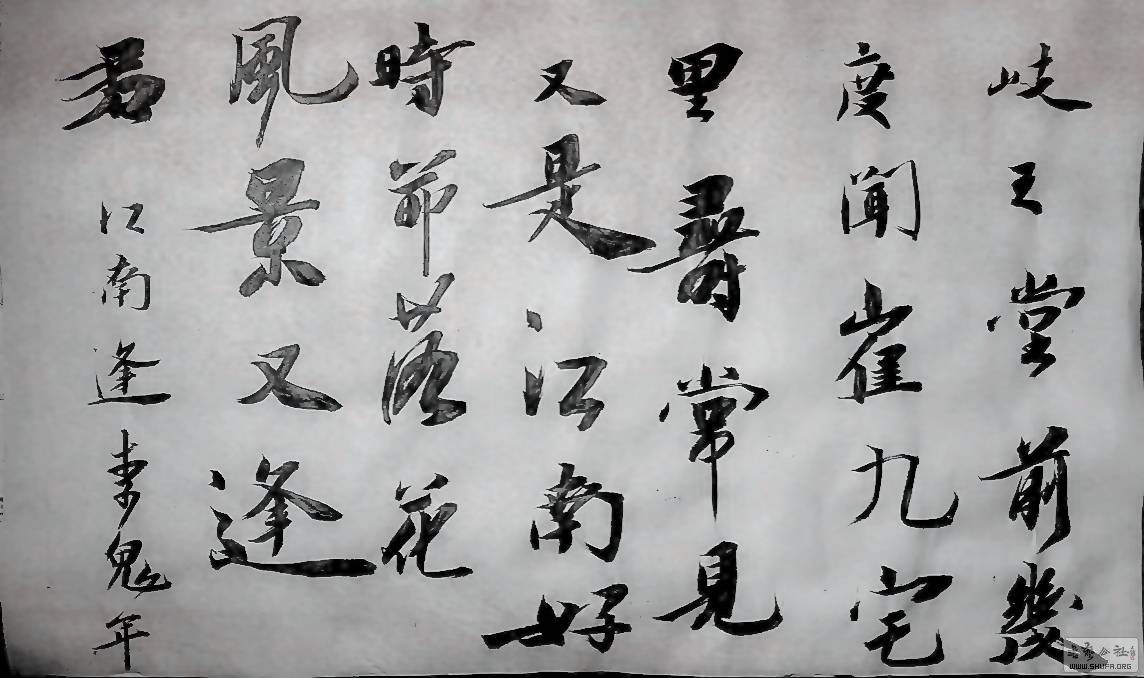 岐王堂前幾
度聞崔九宅
里尋常見
又是江南好
時節落花
風景又逢
君
江南逢李鬼年
WWW.SHUFA.ORG